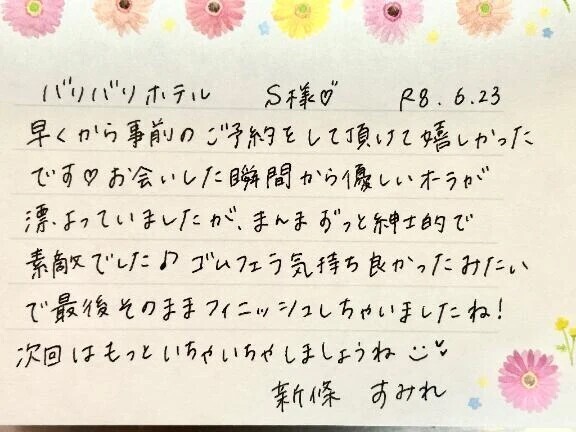 バリバリホテル S様♡ R8.6.23
早くから事前のご予約をして頂けて嬉しかった
です♡お会いした瞬間から優しいオーラが
漂よっていましたが、まんまずっと紳士的で
素敵でした♪ゴムフェラ気持ち良かったみたい
で最後そのままフィニッシュしちゃいましたね!
次回はもっといちゃいちゃしましょうね
新條 すみれ